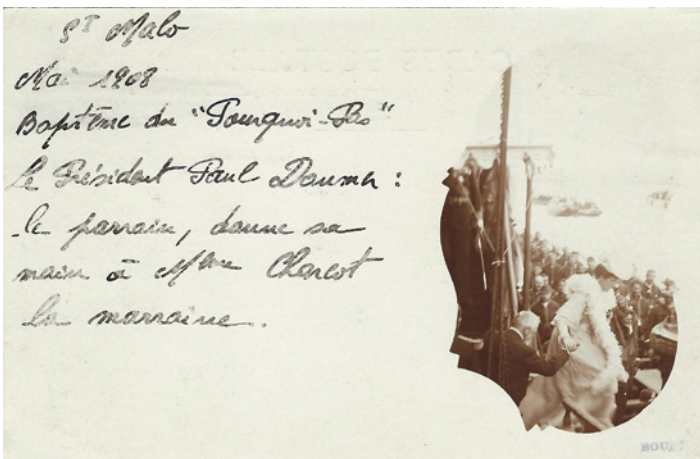 St Malo
Mai 1908
Baptême du "Pourquoi-Pas"
Le Président Paul Doumer :
le parrain, donne sa
main à Mme Charcot
la marraine.